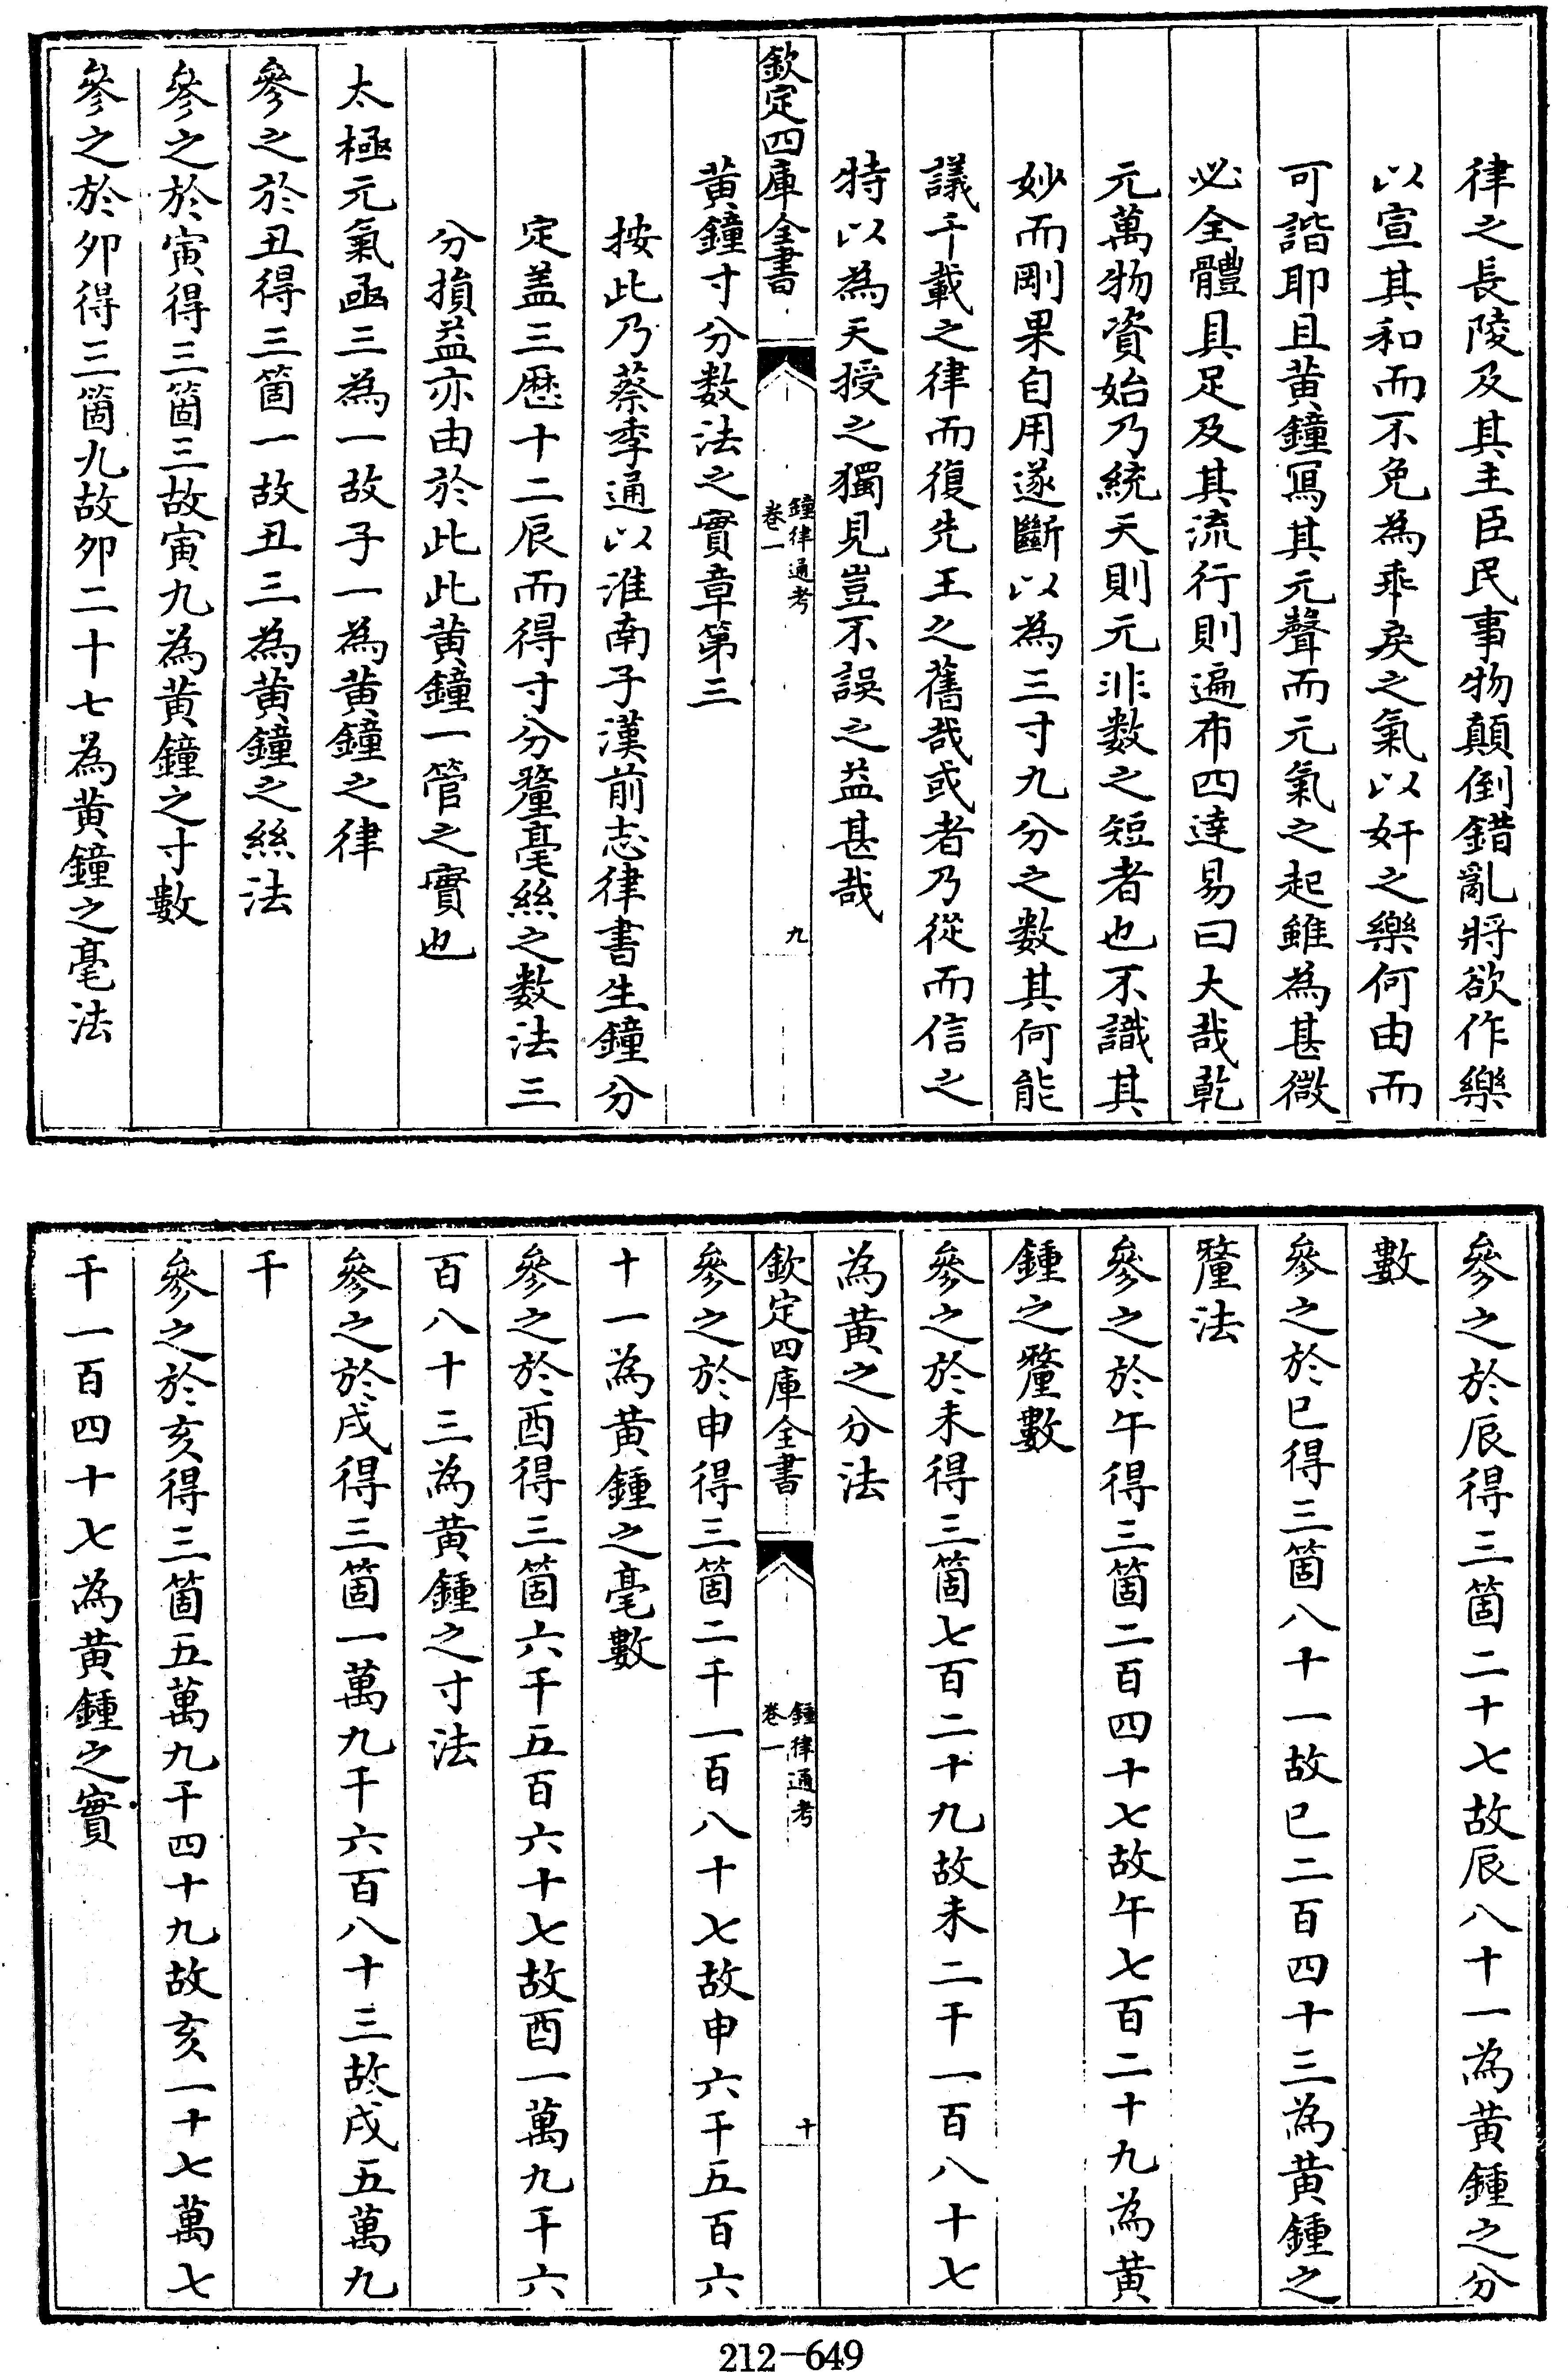 律之長陵及其主臣民事物顛倒錯亂將欲作樂
以宣其和而不免為乖戾之氣以奸之樂何由而
可諧耶且黄鐘冩其元聲而元氣之起雖為甚微
必全體具足及其流行則遍布四達易曰大哉乾
元萬物資始乃統天則元非数之短者也不識其
妙而剛果自用遂斷以為三寸九分之数其何能
議千載之律而復先王之舊哉或者乃從而信之
特以為天授之獨見豈不誤之益甚哉
欽定四庫全書
鐘律通考
卷一
九
黄鐘寸分数法之實章第三
按此乃蔡季通以淮南子漢前志律書生鐘分
定盖三歴十二辰而得寸分釐毫絲之数法三
分損益亦由於此此黄鐘一管之實也
太極元氣函三為一故子一為黄鐘之律
參之於丑得三箇一故丑三為黄鐘之絲法
參之於寅得三箇三故寅九為黄鐘之寸數
參之於夘得三箇九故夘二十七為黄鐘之毫法
參之於辰得三箇二十七故辰八十一為黄鍾之分
數
參之於巳得三箇八十一故巳二百四十三為黄鍾之
釐法
參之於午得三箇二百四十七故午七百二十九為黄
鍾之釐數
參之於未得三箇七百二十九故未二千一百八十七
為黄之分法
欽定四庫全書
鍾律通考
卷一
十
參之於申得三箇二千一百八十七故申六千五百六
十一為黄鍾之毫數
參之於酉得三箇六千五百六十七故酉一萬九千六
百八十三為黄鍾之寸法
參之於戌得三箇一萬九千六百八十三故戌五萬九
千
參之於亥得三箇五萬九千四十九故亥一十七萬七
千一百四十七為黄鍾之實
212-649